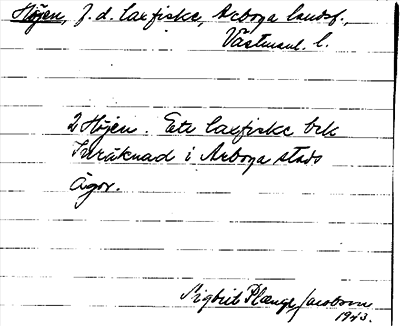 Höjen, f.d. laxfiske, Arboga landsf.,
Västmanl. l.
2 Höjen. Ett laxfiske
Inräknad i Arboga stads
ägor.
Sigbrit Plænge Jacobson
1943.